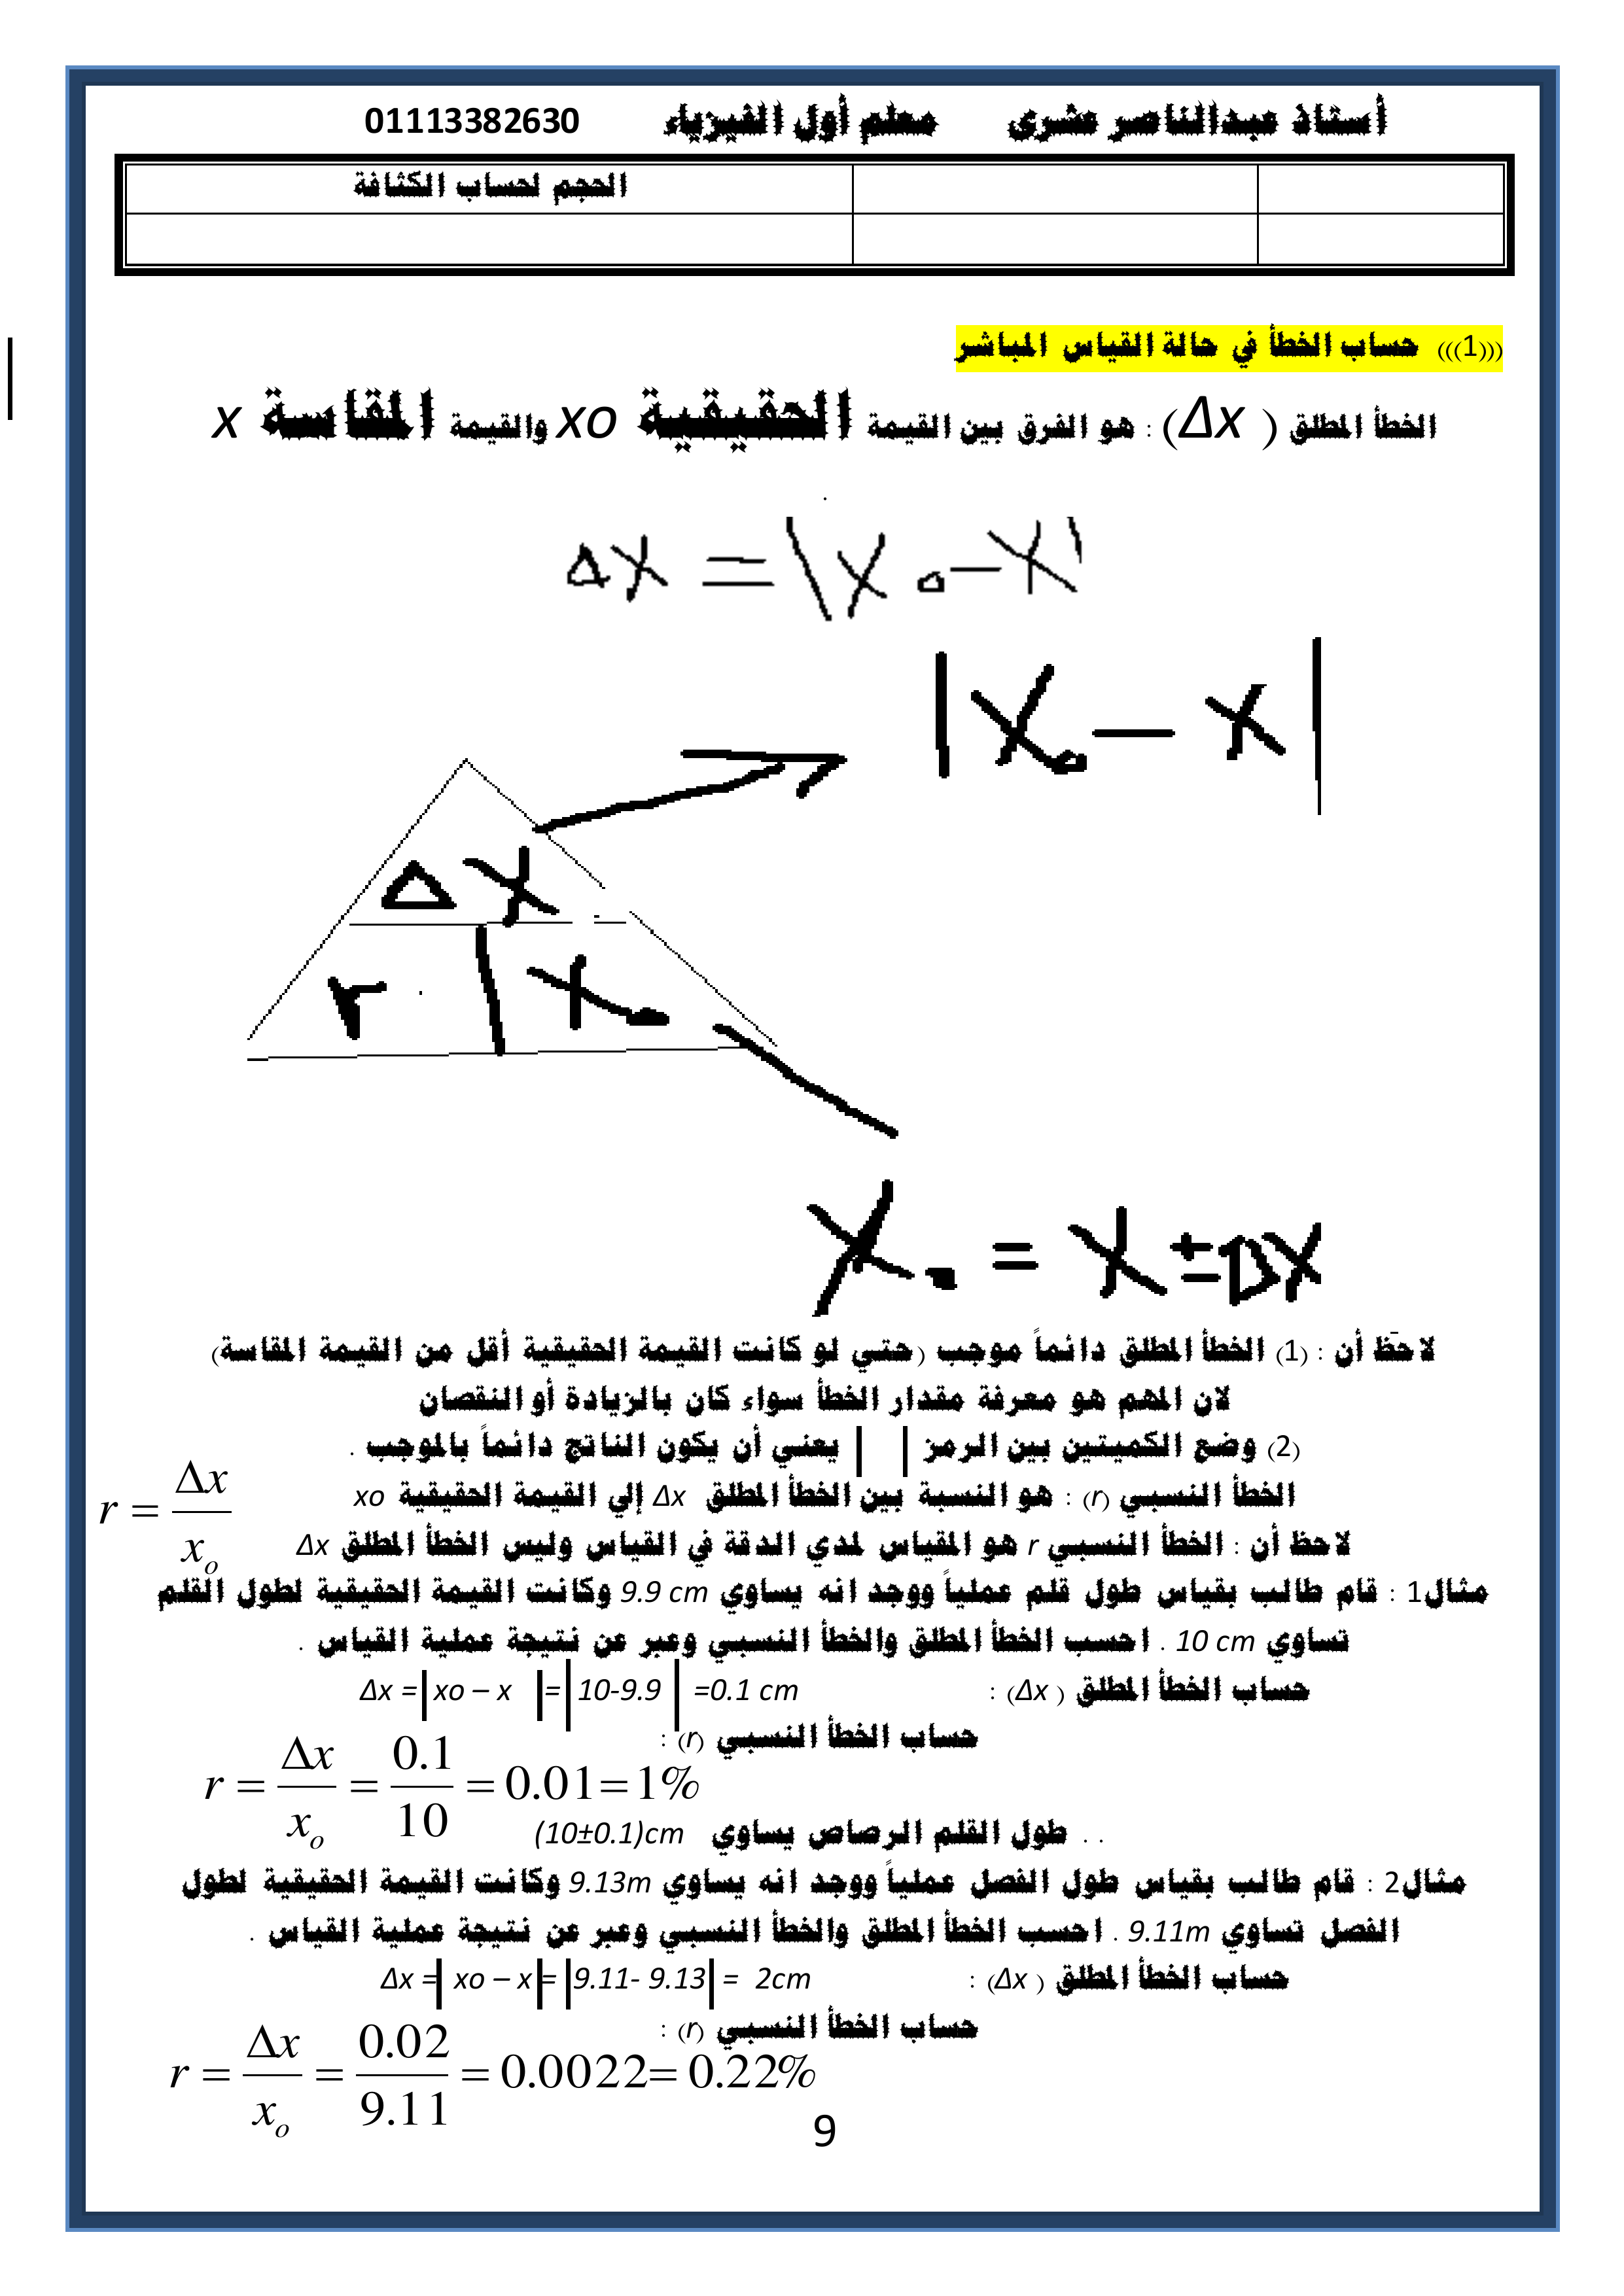 أستاذ عبدالناصر عشرى معلم أول الفيزياء 01113382630
الحجم لحساب الكثافة
(((1))) حساب الخطأ في حالة القياس المباشر
الخطأ المطلق ( Δx) : هو الفرق بين القيمة الحقيقية xo والقيمة المقاسة x
.
Δx = |x₀ - x|
|x₀ - x|
Δx
r | x₀
x₀ = x ± Δx
لاحظ أن : (1) الخطأ المطلق دائماً موجب (حتي لو كانت القيمة الحقيقية أقل من القيمة المقاسة)
لان المهم هو معرفة مقدار الخطأ سواء كان بالزيادة أو النقصان
(2) وضع الكميتين بين الرمز | | يعني أن يكون الناتج دائماً بالموجب .
الخطأ النسبي (r) : هو النسبة بين الخطأ المطلق Δx إلي القيمة الحقيقية xo
r = Δx / xₒ
لاحظ أن : الخطأ النسبي r هو المقياس لمدي الدقة في القياس وليس الخطأ المطلق Δx
مثال1 : قام طالب بقياس طول قلم عملياً ووجد انه يساوي 9.9 cm وكانت القيمة الحقيقية لطول القلم
تساوي 10 cm . احسب الخطأ المطلق والخطأ النسبي وعبر عن نتيجة عملية القياس .
حساب الخطأ المطلق ( Δx) : Δx =| xo – x |=| 10-9.9 | =0.1 cm
حساب الخطأ النسبي (r) :
r = Δx / xₒ = 0.1 / 10 = 0.01 = 1%
. . طول القلم الرصاص يساوي (10±0.1)cm
مثال2 : قام طالب بقياس طول الفصل عملياً ووجد انه يساوي 9.13m وكانت القيمة الحقيقية لطول
الفصل تساوي 9.11m . احسب الخطأ المطلق والخطأ النسبي وعبر عن نتيجة عملية القياس .
حساب الخطأ المطلق ( Δx) : Δx =| xo – x |= |9.11- 9.13| = 2cm
حساب الخطأ النسبي (r) :
r = Δx / xₒ = 0.02 / 9.11 = 0.0022 = 0.22%
9